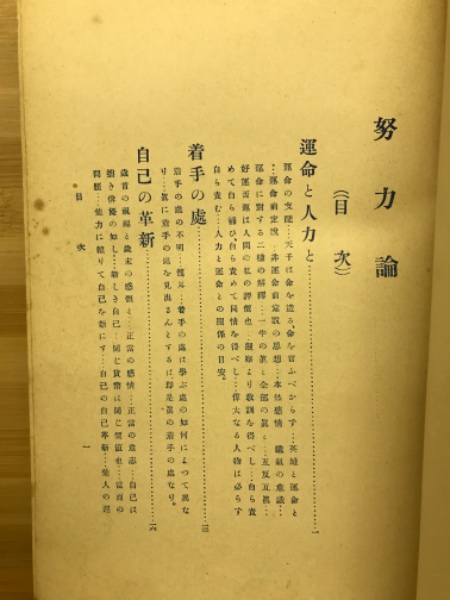 努力論
(目次)
運命と人力と……一
運命の支配…天子は命を造る、命を言ふべからず…英雄と運命と
…運命前定說…非運命前定說の思想…本然感情…
運命に對する二樣の解釋…一半の眞と全部の眞と…
好運否運は人間の私の評價也…觀察より敎訓を得べし…自ら責
めて自ら補ひ、自ら責めて同情を得べし…偉大なる人物は必らず
自ら責む…人力と運命との關係の目安。
着手の處……三
着手の處の不明…着手の處は學ぶ處の如何によつて異な
り…眞に着手の處を見出さんとするは卽是眞の着手の處なり。
自己の革新……六
歲首の祝福と歲末の感慨と…正當の感情…正當の意志…自己は
猶き俳優の如し…新しき自己…同じ貨幣は同じ價値也…當面の
問題…他力に賴りて自己を新にす…自己の自己革新…他人の運
目次
一